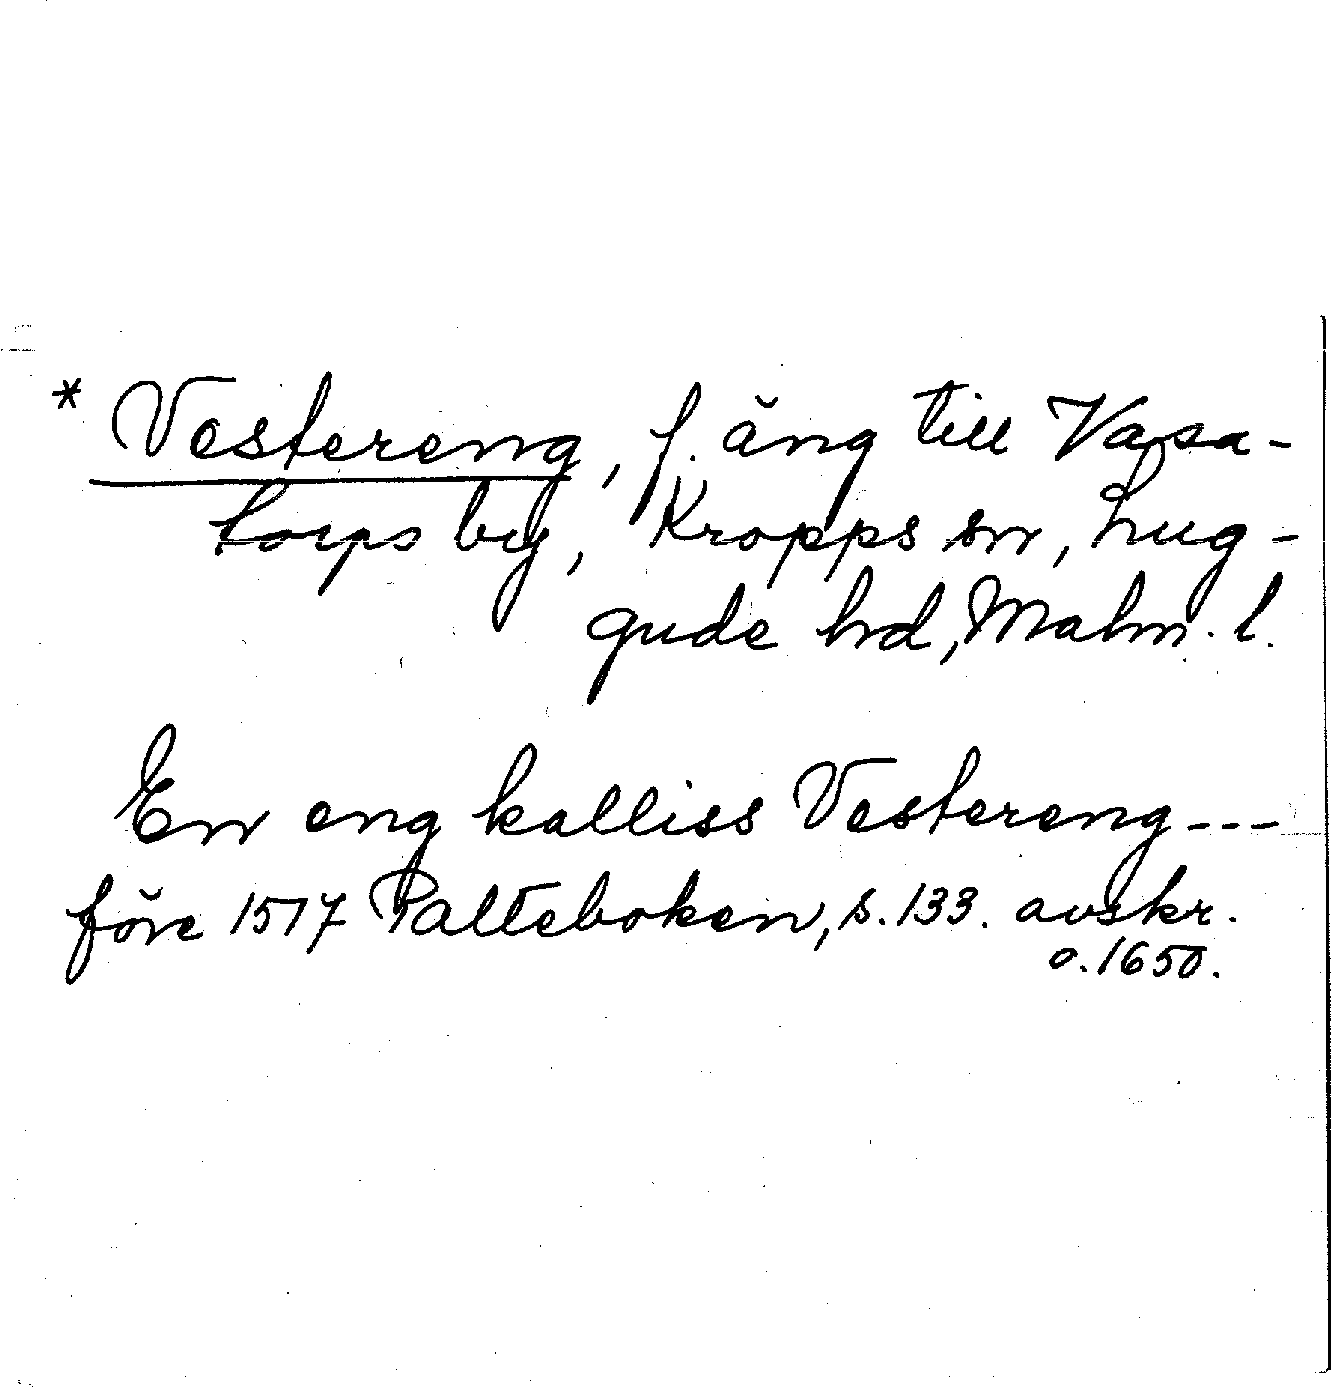 * Vestereng, f. äng till Vasa-
torps by, Kropps sn, Lug-
gude hd, Malm. l.
En eng kalliss Vestereng ---
före 1517 Palteboken, s. 133. avskr.
o. 1650.